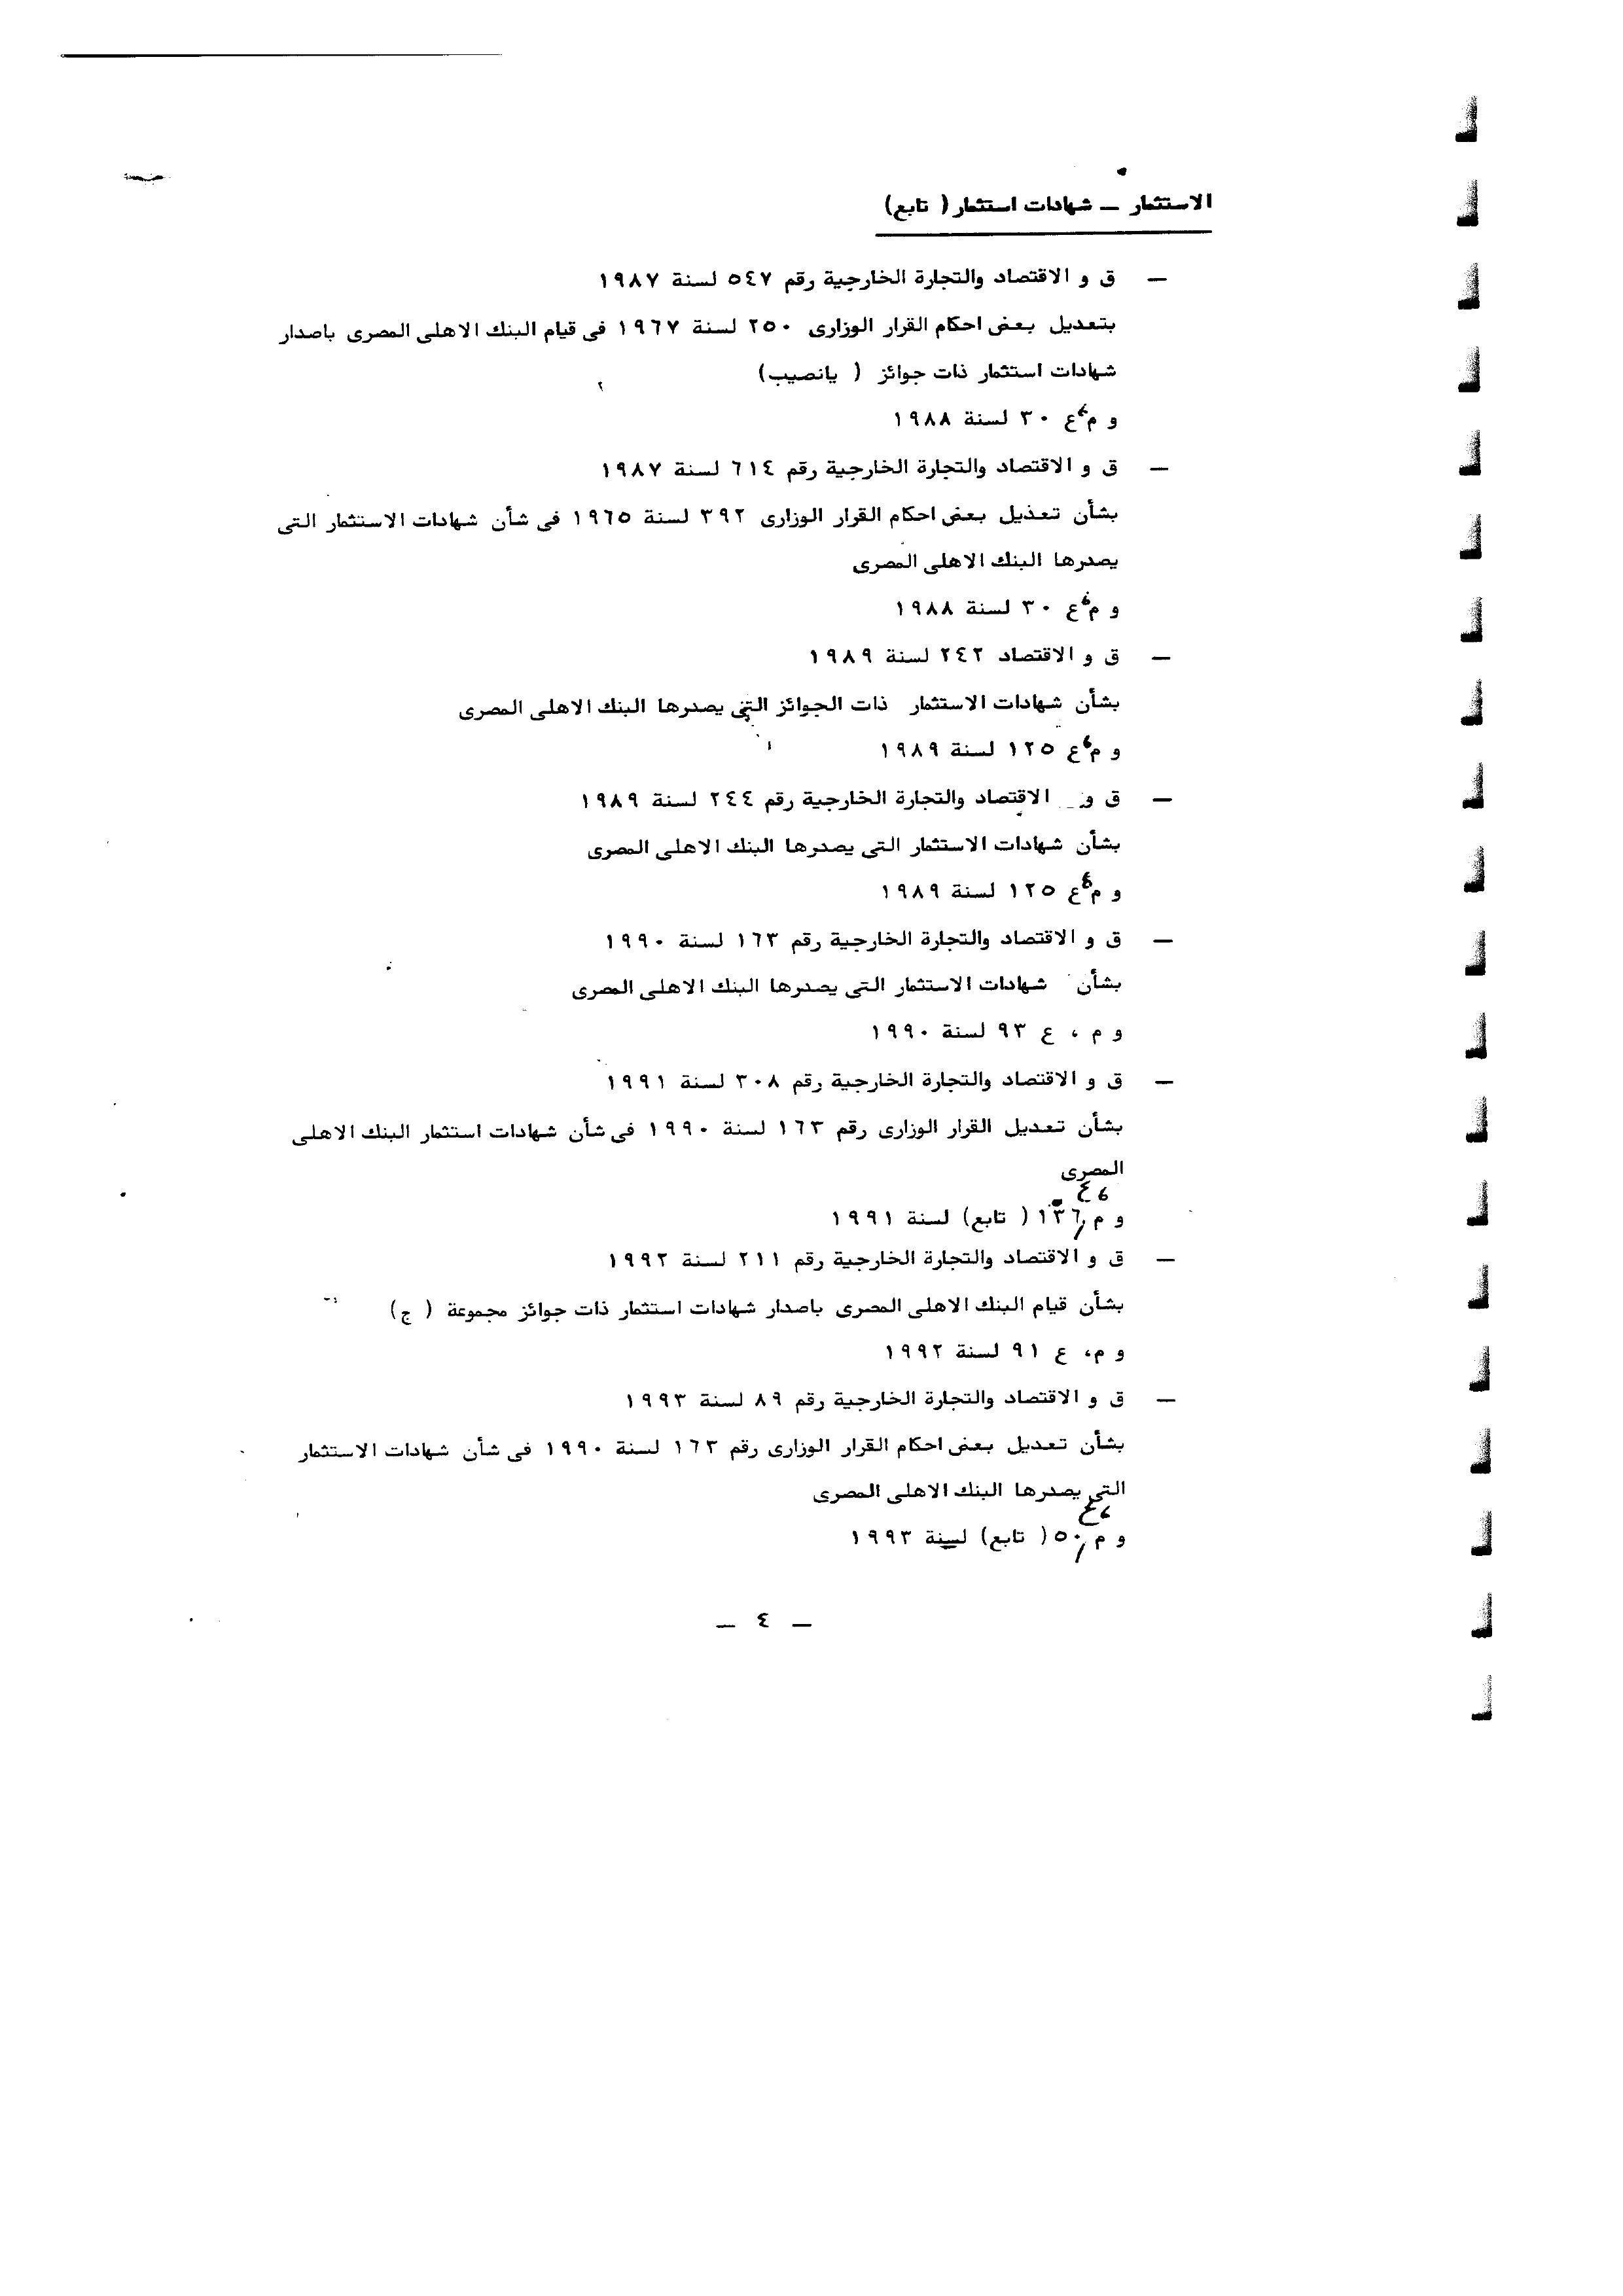 الاستثمار — شهادات استثمار ( تابع)
— ق و الاقتصاد والتجارة الخارجية رقم ٥٤٧ لسنة ١٩٨٧
بتعديل بعض احكام القرار الوزارى ٢٥٠ لسنة ١٩٦٧ فى قيام البنك الاهلى المصرى باصدار
شهادات استثمار ذات جوائز ( يانصيب)
و م، ع ٣٠ لسنة ١٩٨٨
— ق و الاقتصاد والتجارة الخارجية رقم ٦١٤ لسنة ١٩٨٧
بشأن تعذيل بعض احكام القرار الوزارى ٣٩٢ لسنة ١٩٦٥ فى شأن شهادات الاستثمار التى
يصدرها البنك الاهلى المصرى
و م، ع ٣٠ لسنة ١٩٨٨
— ق و الاقتصاد ٢٤٢ لسنة ١٩٨٩
بشأن شهادات الاستثمار ذات الجوائز التى يصدرها البنك الاهلى المصرى
و م، ع ١٢٥ لسنة ١٩٨٩
— ق و الاقتصاد والتجارة الخارجية رقم ٢٤٤ لسنة ١٩٨٩
بشأن شهادات الاستثمار التى يصدرها البنك الاهلى المصرى
و م، ع ١٢٥ لسنة ١٩٨٩
— ق و الاقتصاد والتجارة الخارجية رقم ١٦٣ لسنة ١٩٩٠
بشأن شهادات الاستثمار التى يصدرها البنك الاهلى المصرى
و م ، ع ٩٣ لسنة ١٩٩٠
— ق و الاقتصاد والتجارة الخارجية رقم ٣٠٨ لسنة ١٩٩١
بشأن تعديل القرار الوزارى رقم ١٦٣ لسنة ١٩٩٠ فى شأن شهادات استثمار البنك الاهلى
المصرى
و م ، ع ١٣٦ ( تابع) لسنة ١٩٩١
— ق و الاقتصاد والتجارة الخارجية رقم ٢١١ لسنة ١٩٩٢
بشأن قيام البنك الاهلى المصرى باصدار شهادات استثمار ذات جوائز مجموعة ( ج)
و م، ع ٩١ لسنة ١٩٩٢
— ق و الاقتصاد والتجارة الخارجية رقم ٨٩ لسنة ١٩٩٣
بشأن تعديل بعض احكام القرار الوزارى رقم ١٦٣ لسنة ١٩٩٠ فى شأن شهادات الاستثمار
التى يصدرها البنك الاهلى المصرى
و م ، ع ٥٠ ( تابع) لسنة ١٩٩٣
— ٤ —